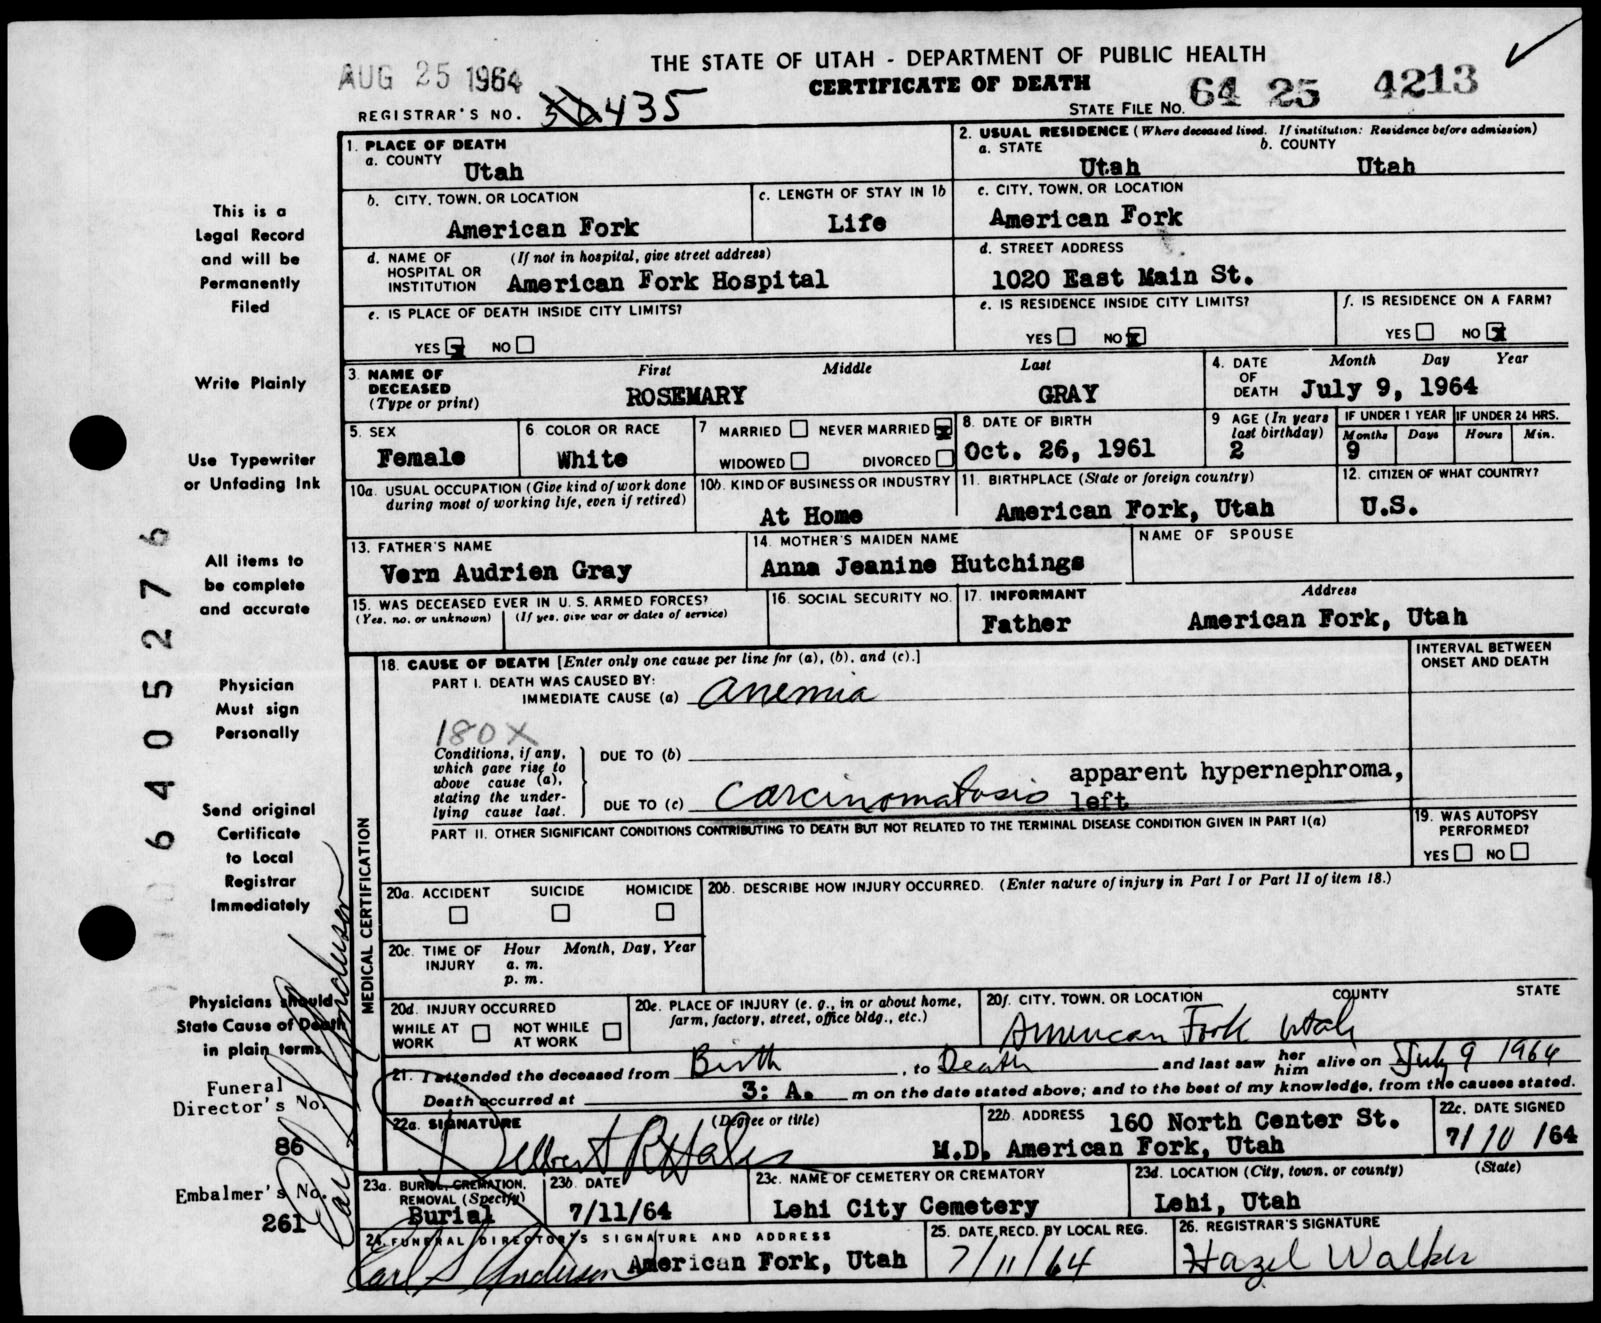 THE STATE OF UTAH - DEPARTMENT OF PUBLIC HEALTH
AUG 25 1964
CERTIFICATE OF DEATH
REGISTRAR'S NO. 435
STATE FILE NO. 64 25 4213
1. PLACE OF DEATH
a. COUNTY
Utah
2. USUAL RESIDENCE (Where deceased lived. If institution: Residence before admission)
a. STATE b. COUNTY
Utah Utah
b. CITY, TOWN, OR LOCATION
American Fork
c. LENGTH OF STAY IN 1b
Life
c. CITY, TOWN, OR LOCATION
American Fork
d. NAME OF HOSPITAL OR INSTITUTION (If not in hospital, give street address)
American Fork Hospital
d. STREET ADDRESS
1020 East Main St.
e. IS PLACE OF DEATH INSIDE CITY LIMITS?
YES x NO
e. IS RESIDENCE INSIDE CITY LIMITS?
YES NO x
f. IS RESIDENCE ON A FARM?
YES NO x
3. NAME OF DECEASED (Type or print)
First Middle Last
ROSEMARY GRAY
4. DATE OF DEATH Month Day Year
July 9, 1964
5. SEX
Female
6 COLOR OR RACE
White
7 MARRIED NEVER MARRIED x
WIDOWED DIVORCED
8. DATE OF BIRTH
Oct. 26, 1961
9 AGE (In years last birthday)
2
IF UNDER 1 YEAR IF UNDER 24 HRS.
Months Days Hours Min.
9
10a. USUAL OCCUPATION (Give kind of work done during most of working life, even if retired)
10b. KIND OF BUSINESS OR INDUSTRY
At Home
11. BIRTHPLACE (State or foreign country)
American Fork, Utah
12. CITIZEN OF WHAT COUNTRY?
U.S.
13. FATHER'S NAME
Vern Audrien Gray
14. MOTHER'S MAIDEN NAME
Anna Jeanine Hutchings
NAME OF SPOUSE
15. WAS DECEASED EVER IN U. S. ARMED FORCES?
(Yes, no, or unknown) (If yes, give war or dates of service)
16. SOCIAL SECURITY NO.
17. INFORMANT Address
Father American Fork, Utah
MEDICAL CERTIFICATION
18. CAUSE OF DEATH [Enter only one cause per line for (a), (b), and (c).]
INTERVAL BETWEEN ONSET AND DEATH
PART I. DEATH WAS CAUSED BY:
IMMEDIATE CAUSE (a) Anemia
180X
Conditions, if any, which gave rise to above cause (a), stating the underlying cause last.
DUE TO (b)
DUE TO (c) Carcinomatosis apparent hypernephroma, left
PART II. OTHER SIGNIFICANT CONDITIONS CONTRIBUTING TO DEATH BUT NOT RELATED TO THE TERMINAL DISEASE CONDITION GIVEN IN PART I(a)
19. WAS AUTOPSY PERFORMED?
YES NO
20a. ACCIDENT SUICIDE HOMICIDE
20b. DESCRIBE HOW INJURY OCCURRED. (Enter nature of injury in Part I or Part II of item 18.)
20c. TIME OF INJURY Hour Month, Day, Year
a. m.
p. m.
20d. INJURY OCCURRED
WHILE AT WORK NOT WHILE AT WORK
20e. PLACE OF INJURY (e. g., in or about home, farm, factory, street, office bldg., etc.)
20f. CITY, TOWN, OR LOCATION COUNTY STATE
American Fork Utah
21. I attended the deceased from Birth, to Death and last saw her him alive on July 9 1964
Death occurred at 3: A. m on the date stated above; and to the best of my knowledge, from the causes stated.
22a. SIGNATURE (Degree or title)
Delbert R Hales M.D.
22b. ADDRESS 160 North Center St.
American Fork, Utah
22c. DATE SIGNED
7/10/64
23a. BURIAL, CREMATION, REMOVAL (Specify)
Burial
23b. DATE
7/11/64
23c. NAME OF CEMETERY OR CREMATORY
Lehi City Cemetery
23d. LOCATION (City, town, or county) (State)
Lehi, Utah
24. FUNERAL DIRECTOR'S SIGNATURE AND ADDRESS
Earl S Anderson American Fork, Utah
25. DATE RECD. BY LOCAL REG.
7/11/64
26. REGISTRAR'S SIGNATURE
Hazel Walker
This is a
Legal Record
and will be
Permanently
Filed
Write Plainly
Use Typewriter
or Unfading Ink
All items to
be complete
and accurate
Physician
Must sign
Personally
Send original
Certificate
to Local
Registrar
Immediately
Physicians should
State Cause of Death
in plain terms
Funeral
Director's No.
86
Embalmer's No.
261
Earl S Anderson
6405276